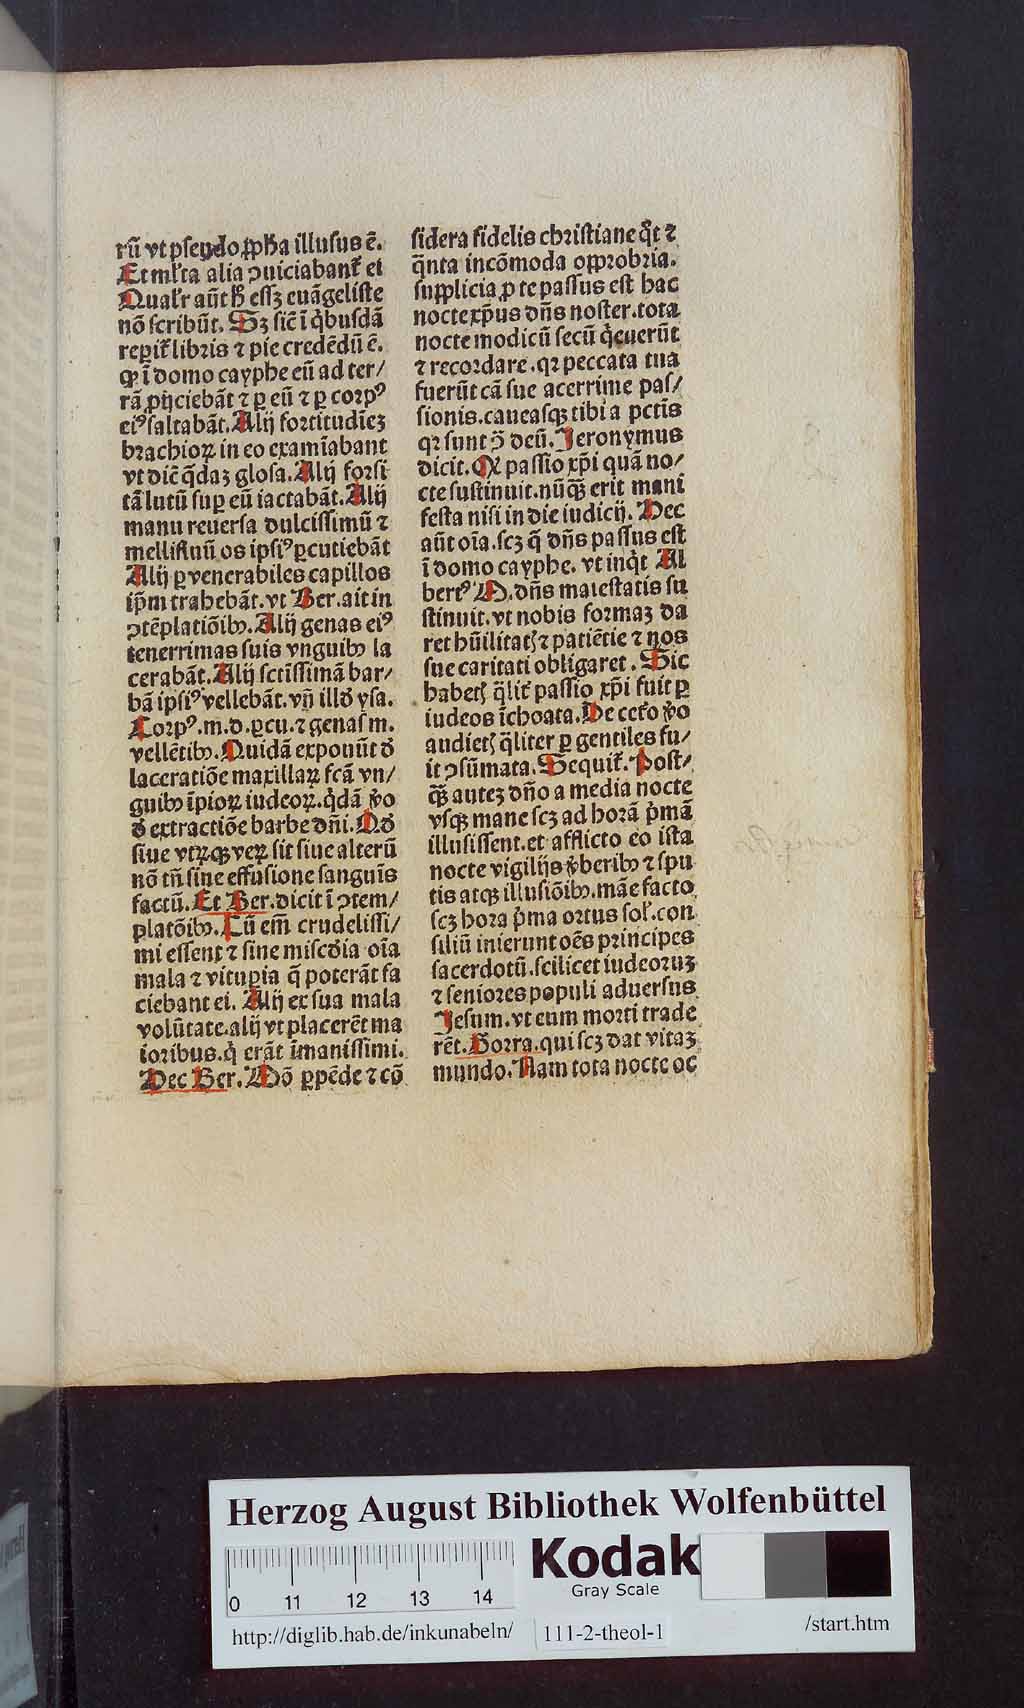 rū vt pseudo ꝓpħa illusus ē.
Et ml̓ta alia ꝯuiciabant̃ ei
Qual̓r aūt ħ essꝫ euāgeliste
nō scribūt. Sꝫ sic̄ ī q̇busdā
reperit̃ libris ⁊ pie credēdū ē.
ꝙ ī domo cayphe eū ad ter/
rā ꝓijciebāt ⁊ ꝑ eū ⁊ ꝑ corpꝰ
eiꝰ saltabāt. Alij fortitudīeꝫ
brachioꝝ in eo examīabant
vt dic̄ q̄daꝫ glosa. Alij forsi
tā lutū suꝑ eū iactabāt. Alij
manu reuersa dulcissimū ⁊
mellifluū os ipsiꝰ ꝑcutiebāt
Alij ꝑ venerabiles capillos
ip̄m trahebāt. vt Ber. ait in
ꝯtēplatiōibꝰ. Alij genas eiꝰ
tenerrimas suis vnguibꝰ la
cerabāt. Alij sctīssimā bar/
bā ipsiꝰ vellebāt. vñ illđ ysa.
Corpꝰ. m. d. ꝑcu. ⁊ genas m.
vellētibꝰ. Quidā exponūt đ
laceratiōe maxillaꝝ fcā vn/
guibꝰ īpioꝝ iudeoꝝ. q̇dā ꝟo
đ extractiōe barbe dn̄i. Qđ
siue vtꝝqꝫ veꝝ sit siue alterū
nō tn̄ sine effusione sanguīs
factū. Et Ber. dicit ī ꝯtem/
platōibꝰ. Cū em̄ crudelissi/
mi essent ⁊ sine mis̄cđia oīa
mala ⁊ vituꝑia q̄ poterāt fa
ciebant ei. Alij ex sua mala
volūtate. alij vt placerēt ma
ioribus. q̇ erāt īmanissimi.
Hec Ber. Mō ꝑpēde ⁊ cō
sidera fidelis christiane q̊t ⁊
q̄nta incōmoda opprobria.
supplicia ꝓ te passus est hac
nocte xp̄us dn̄s noster. tota
nocte modicū secū q̇euerūt
⁊ recordare. qꝛ peccata tua
fuerūt cā sue acerrime pas/
sionis. caueasqꝫ tibi a pctīs
qꝛ sunt ꝯ̄ deū. Jeronymus
dicit. Qꝫ passio xp̄i quā no/
cte sustinuit. nūqꝫ̄ erit mani
festa nisi in die iudicij. Hec
aūt oīa. scꝫ q̄ dn̄s passus est
ī domo cayphe. vt inq̇t Al
bertꝰ M. dn̄s maiestatis su
stinuit. vt nobis formaꝫ da
ret hūilitatꝭ ⁊ patiētie ⁊ nos
sue caritati obligaret. Sic
habetꝭ q̄lit̃ passio xp̄i fuit ꝑ
iudeos īchoata. De cet̓o ꝟo
audietꝭ q̄liter ꝑ gentiles fu/
it ꝯsūmata. Sequit̃. Post/
qꝫ̄ auteꝫ dn̄o a media nocte
vsqꝫ mane scꝫ ad horā p̓mā
illusissent. et afflicto eo ista
nocte vigilijs ꝟberibꝰ ⁊ spu
tis atqꝫ illusiōibꝰ. māe facto
scꝫ hora p̓ma ortus sol̓. con
siliū inierunt oēs principes
sacerdotū. scilicet iudeoruꝫ
⁊ seniores populi aduersus
Jesum. vt eum morti trade
rēt. Gorra. qui scꝫ dat vitaꝫ
mundo. Nam tota nocte oc
Herzog August Bibliothek Wolfenbüttel
Kodak
Gray Scale
0 11 12 13 14
http://diglib.hab.de/inkunabeln/ 111-2-theol-1 /start.htm